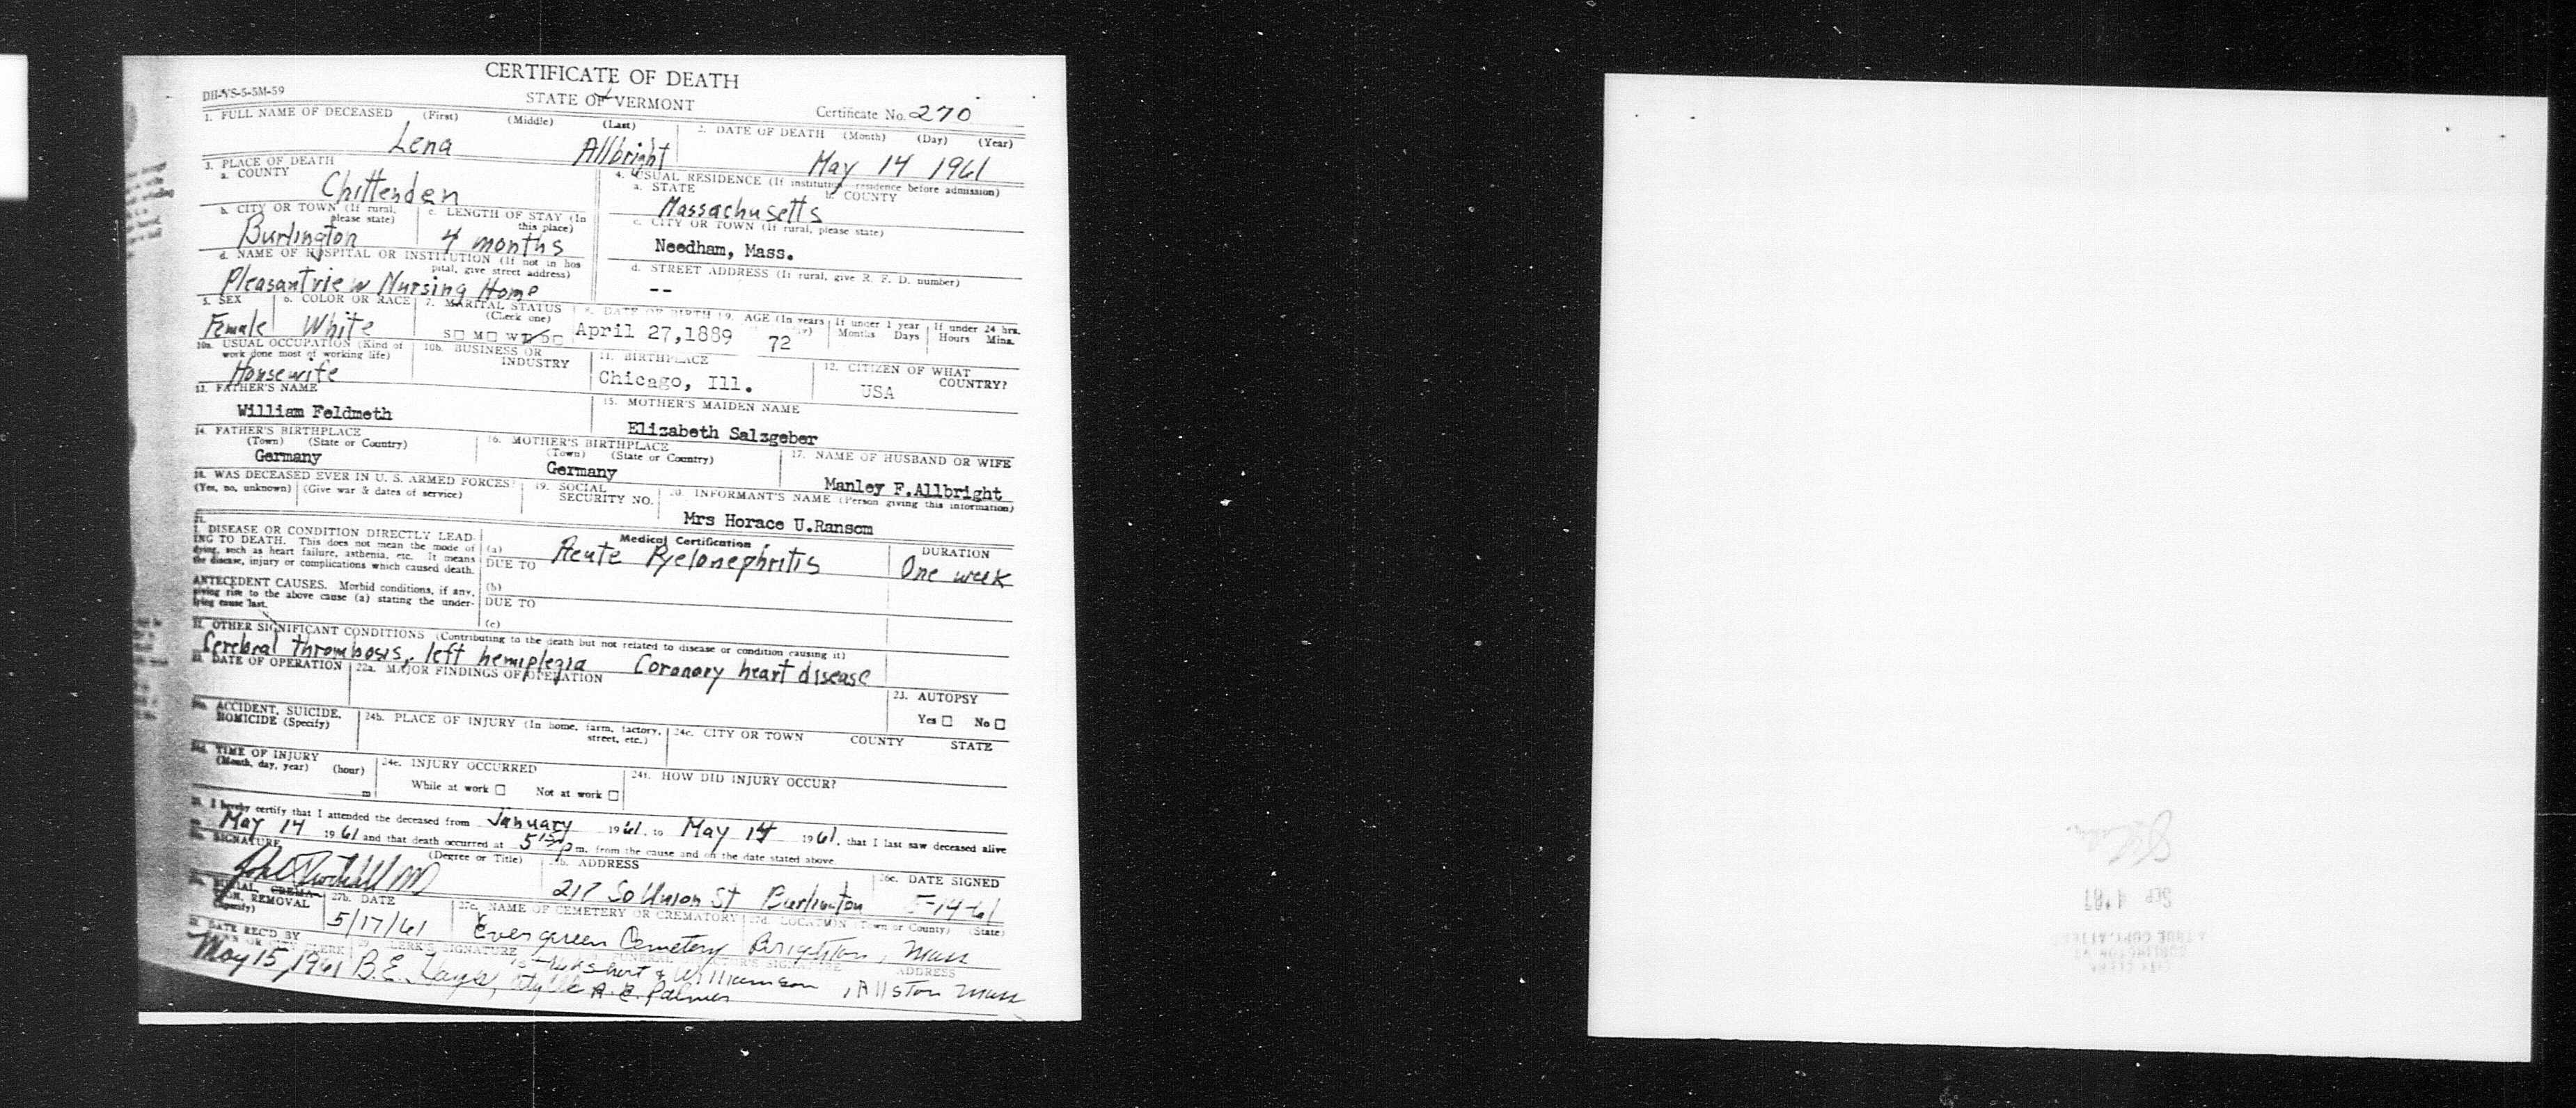 CERTIFICATE OF DEATH
DH-VS-5-5M-59
STATE OF VERMONT
Certificate No. 270
1. FULL NAME OF DECEASED (First) (Middle) (Last)
Lena Allbright
2. DATE OF DEATH (Month) (Day) (Year)
May 14 1961
3. PLACE OF DEATH
a. COUNTY
Chittenden
4. USUAL RESIDENCE (If institution—residence before admission)
a. STATE b. COUNTY
Massachusetts
b. CITY OR TOWN (If rural, please state)
Burlington
c. LENGTH OF STAY (In this place)
4 months
c. CITY OR TOWN (If rural, please state)
Needham, Mass.
d. NAME OF HOSPITAL OR INSTITUTION (If not in hos
pital, give street address)
Pleasantview Nursing Home
d. STREET ADDRESS (If rural, give R. F. D. number)
--
5. SEX
Female
6. COLOR OR RACE
White
7. MARITAL STATUS
(Check one)
S□ M□ W
8. DATE OF BIRTH
April 27,1889
9. AGE (In years
72
If under 1 year
Months Days
If under 24 hrs.
Hours Mins.
10a. USUAL OCCUPATION (Kind of
work done most of working life)
Housewife
10b. BUSINESS OR
INDUSTRY
11. BIRTHPLACE
Chicago, Ill.
12. CITIZEN OF WHAT
COUNTRY?
USA
13. FATHER'S NAME
William Feldmeth
15. MOTHER'S MAIDEN NAME
Elizabeth Salzgeber
14. FATHER'S BIRTHPLACE
(Town) (State or Country)
Germany
16. MOTHER'S BIRTHPLACE
(Town) (State or Country)
Germany
17. NAME OF HUSBAND OR WIFE
Manley F.Allbright
18. WAS DECEASED EVER IN U. S. ARMED FORCES?
(Yes, no, unknown) (Give war & dates of service)
19. SOCIAL
SECURITY NO.
20. INFORMANT'S NAME (Person giving this information)
Mrs Horace U.Ransom
21.
I. DISEASE OR CONDITION DIRECTLY LEAD-
ING TO DEATH. This does not mean the mode of
dying, such as heart failure, asthenia, etc. It means
the disease, injury or complications which caused death.
Medical Certification
(a) Acute Pyelonephritis
DUE TO
DURATION
One week
ANTECEDENT CAUSES. Morbid conditions, if any,
giving rise to the above cause (a) stating the under-
lying cause last.
(b)
DUE TO
(c)
II. OTHER SIGNIFICANT CONDITIONS (Contributing to the death but not related to disease or condition causing it)
Cerebral thrombosis, left hemiplegia Coronary heart disease
DATE OF OPERATION
22a. MAJOR FINDINGS OF OPERATION
23. AUTOPSY
Yes □ No □
ACCIDENT, SUICIDE,
HOMICIDE (Specify)
24b. PLACE OF INJURY (In home, farm, factory,
street, etc.)
24c. CITY OR TOWN COUNTY STATE
TIME OF INJURY
(Month, day, year) (hour)
m
24e. INJURY OCCURRED
While at work □ Not at work □
24f. HOW DID INJURY OCCUR?
25. I hereby certify that I attended the deceased from January 1961, to May 14 1961, that I last saw deceased alive
May 14 1961 and that death occurred at 5 p m. from the cause and on the date stated above.
SIGNATURE (Degree or Title)
26b. ADDRESS
217 So Union St Burlington
26c. DATE SIGNED
5-14-61
BURIAL, CREMA-
TION, REMOVAL
(Specify)
27b. DATE
5/17/61
27c. NAME OF CEMETERY OR CREMATORY
Evergreen Cemetery
27d. LOCATION (Town or County) (State)
Brighton, Mass
DATE REC'D BY
TOWN OR CITY CLERK
May 15, 1961
CLERK'S SIGNATURE
B.E.
FUNERAL DIRECTOR'S SIGNATURE
& Williamson
A. E. Palmer
ADDRESS
Allston Mass
SEP 4 '81